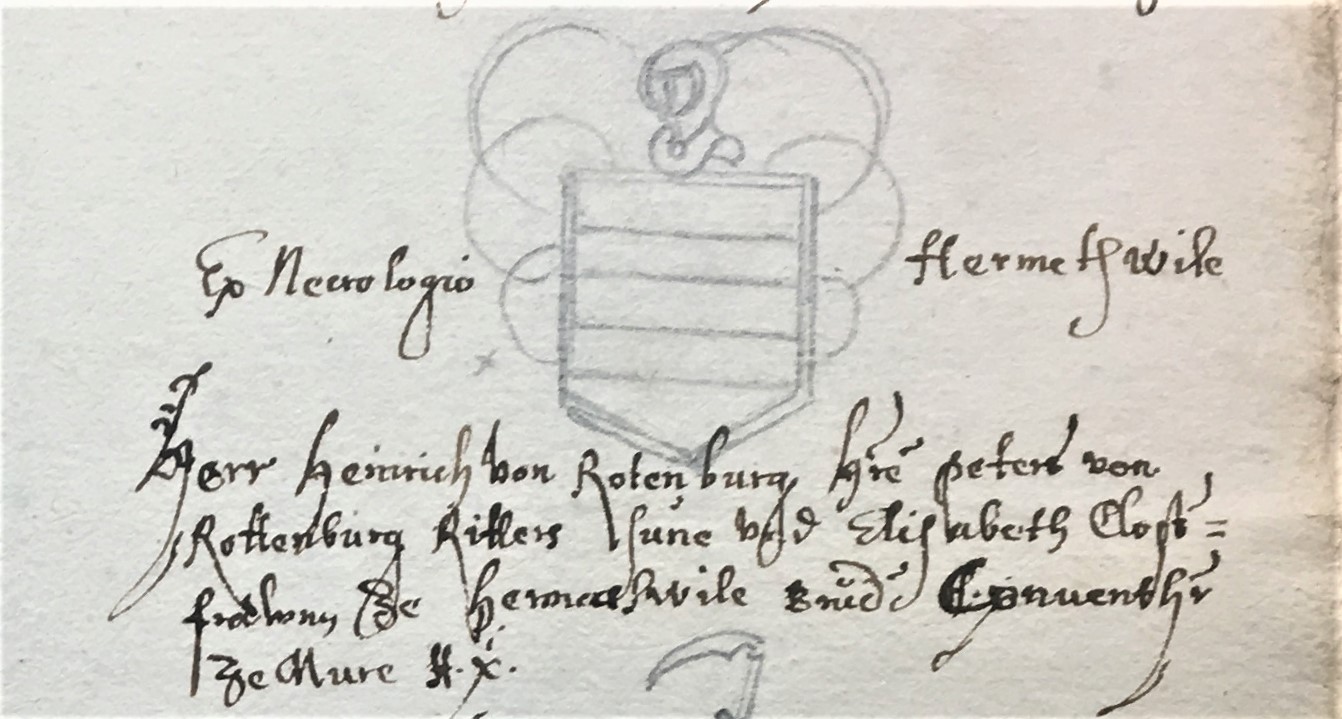 Ex Necrologio Hermetschwile
Herr Heinrich von Rotenburg, Hre peters von
Rottenburg Ritters sune vnd Elisabeth Clost=
frowen Ze Hermatswile Conventshr
Ze Mure